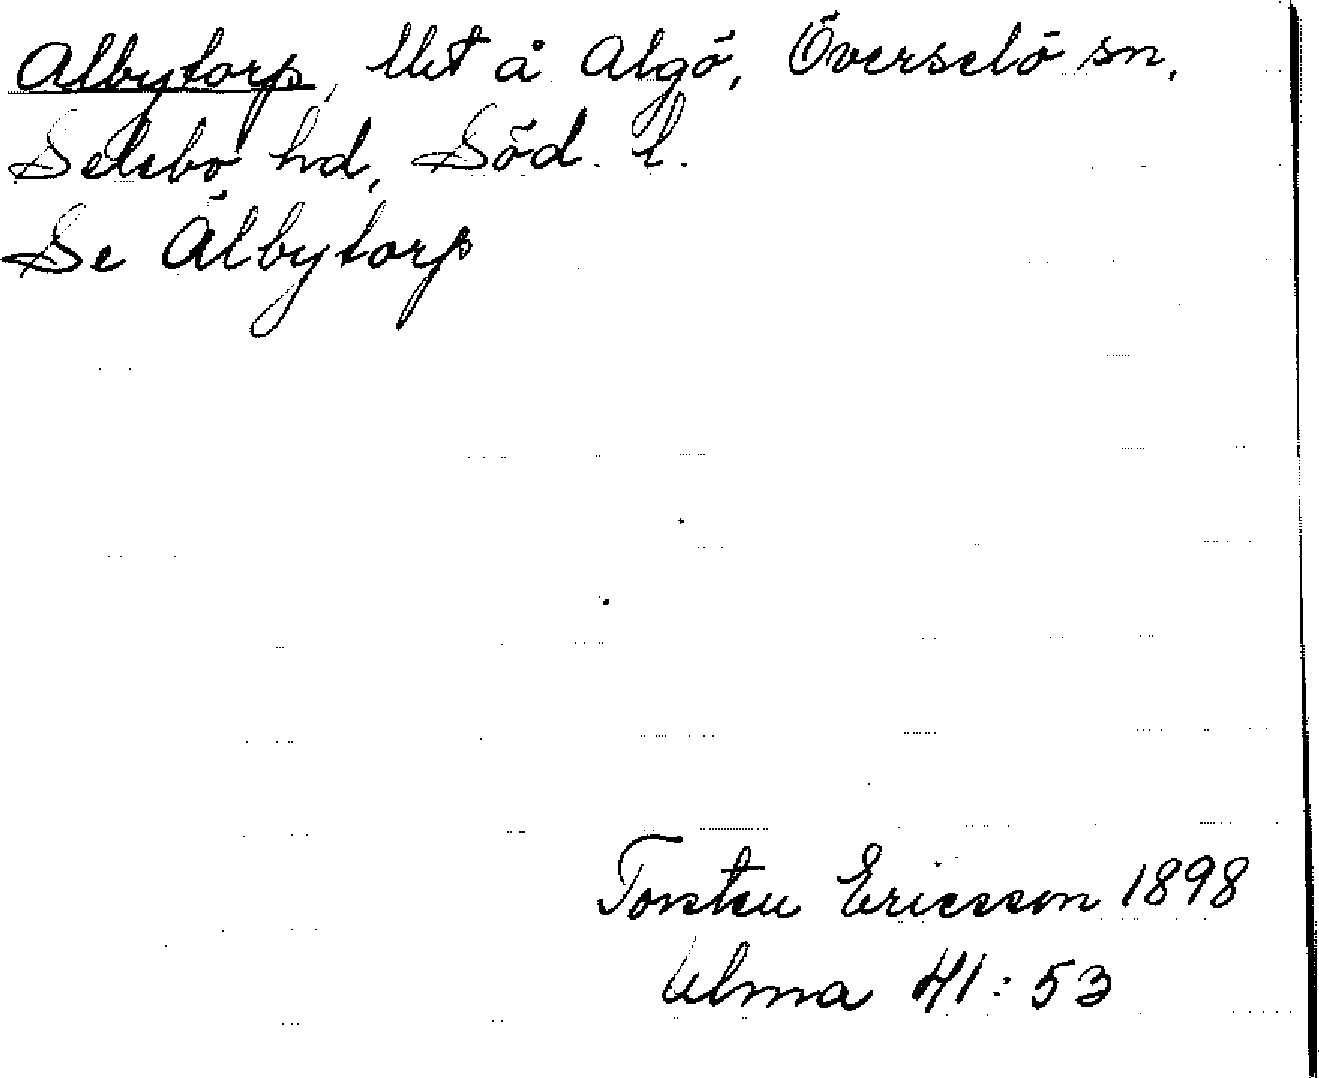 Albytorp, Uet å Algö, Överselö sn,
Selebo hd, Söd. l.
Se Älbytorp
Torsten Ericsson 1898
Ulma 41:53